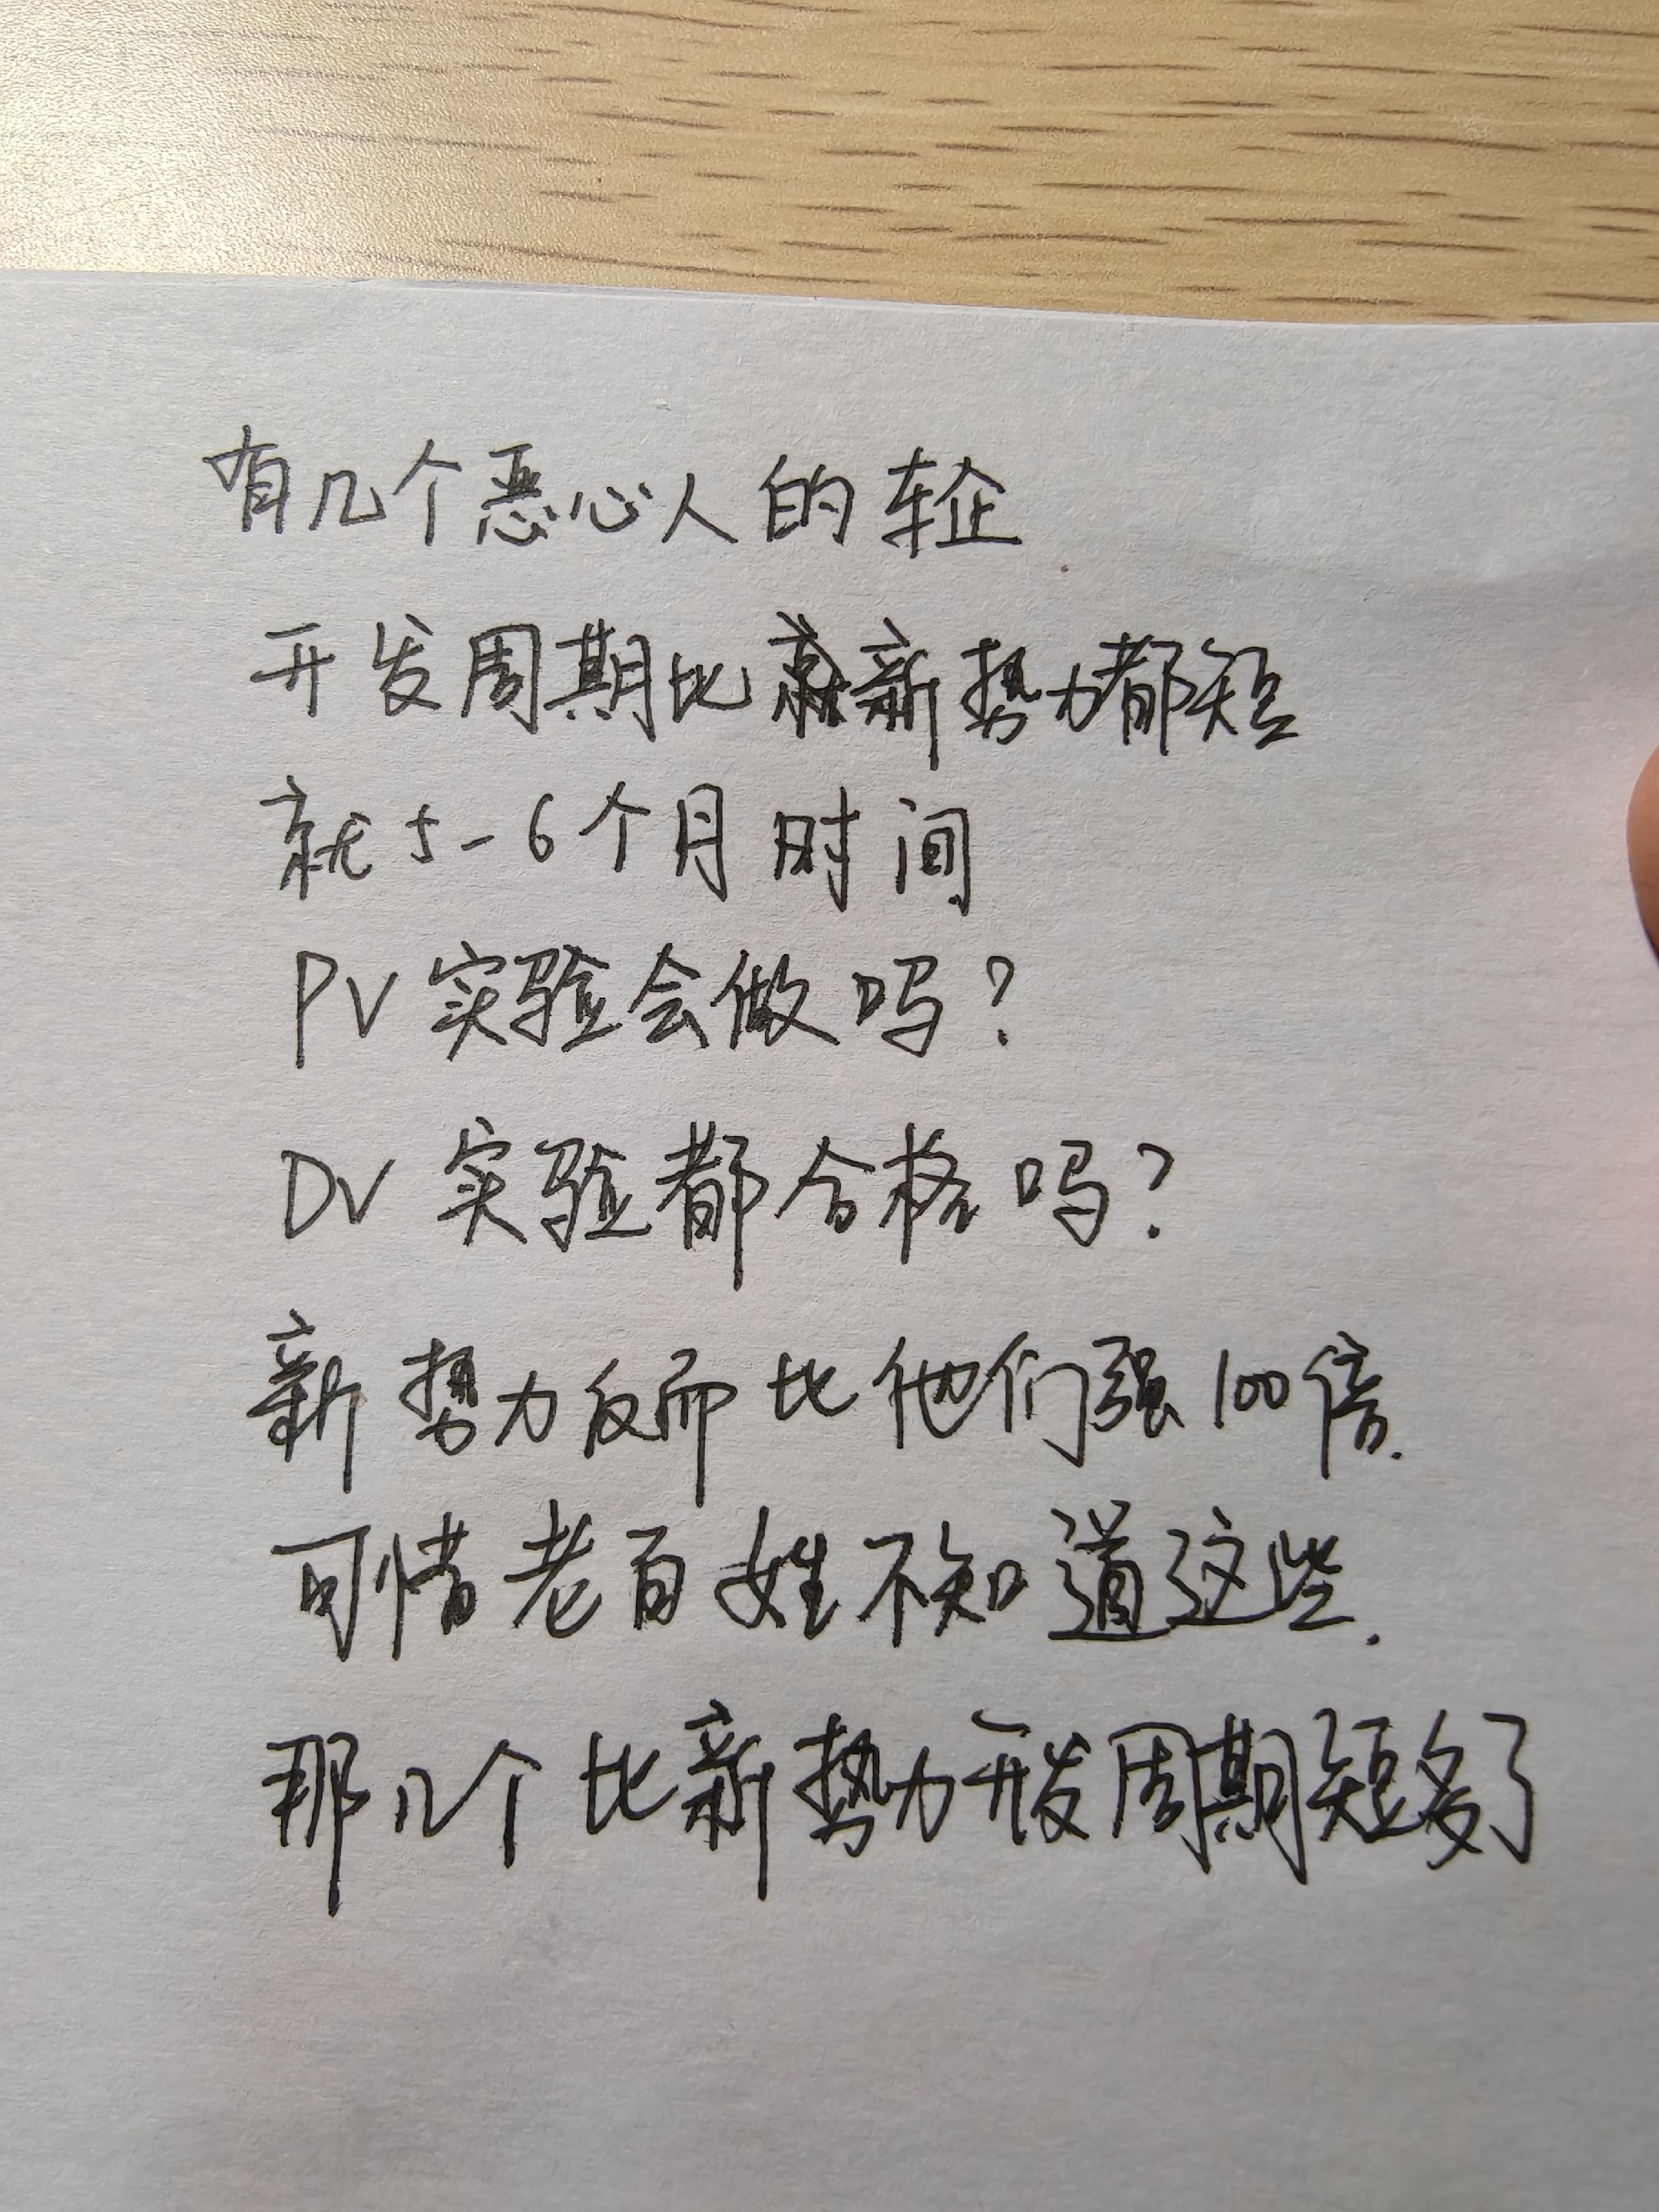 有几个恶心人的车企
开发周期比新势力都短
就5-6个月时间
PV实验会做吗?
DV实验都合格吗?
新势力反而比他们强100倍.
可惜老百姓不知道这些.
那几个比新势力开发周期短多了